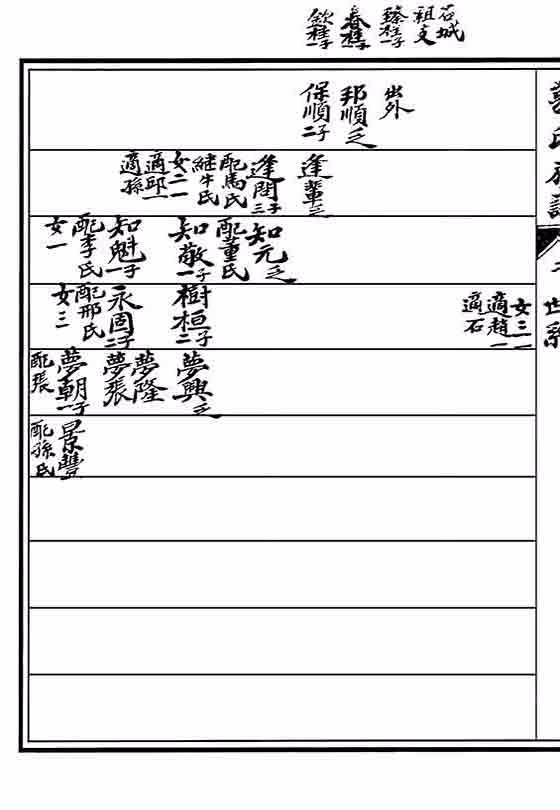 石城
祖支
臻桂一子
春桂一子
欽桂一子
出外
邦順乏
保順二子
逢輩乏
逢閏三子
配馬氏
継牛氏
女二一
適邱一
適孫
知元乏
配董氏
知敬一子
知魁一子
配李氏
女一
女三一
適趙一
適石
樹桓二子
永固二子
配邢氏
女三
夢興乏
夢隆
夢張
夢朝一子
配張
景豐
配孫氏
世系